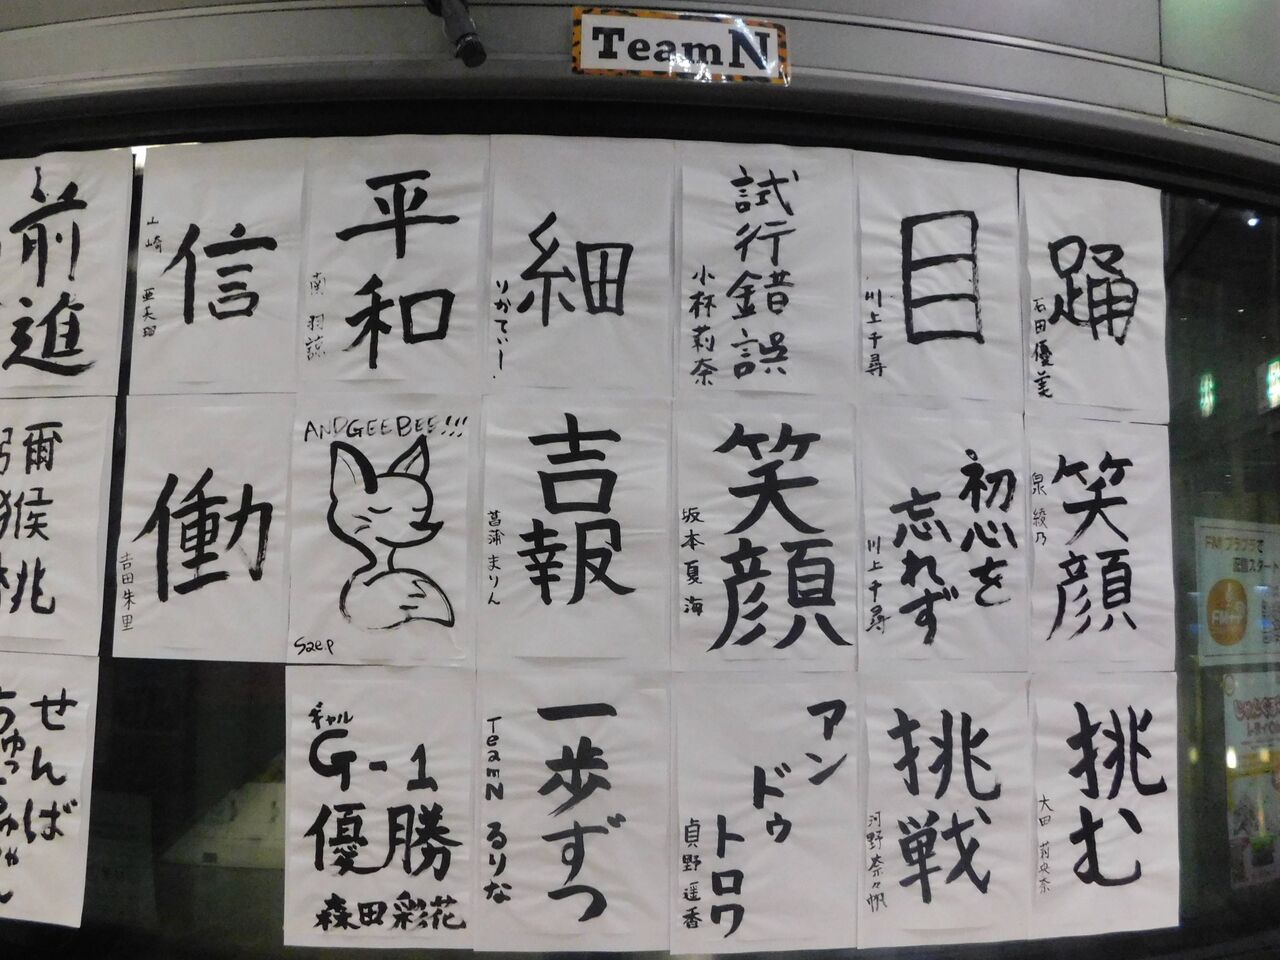 TeamN
踊
石田優美
目
川上千尋
試行錯誤
小林莉奈
細
りかてぃー
平和
南 羽諒
信
山崎 亜美瑠
前進
笑顔
泉 綾乃
初心を
忘れず
川上千尋
笑顔
坂本夏海
吉報
菖蒲 まりん
ANDGEEBEE!!!
Sae.p
働
吉田朱里
獼
猴
桃
挑む
大田 莉央奈
挑戦
河野奈々帆
アン
ドゥ
トロワ
貞野遥香
一歩ずつ
TeamN るりな
ギャル
G-1
優勝
森田彩花
せんば